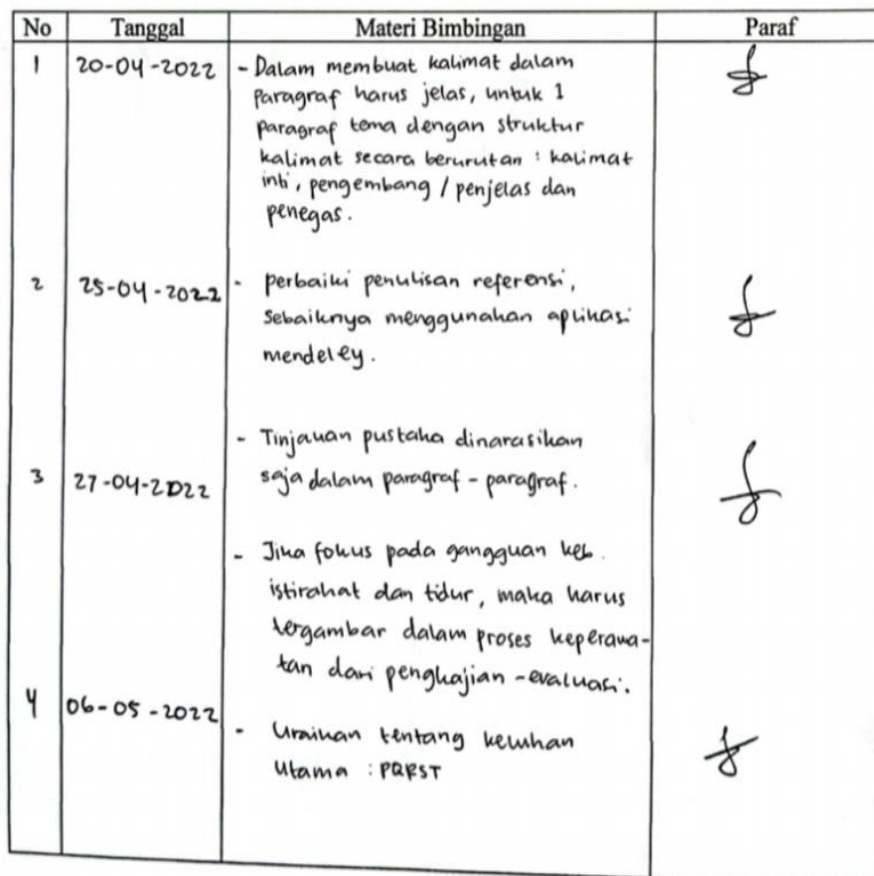 No Tanggal Materi Bimbingan Paraf
1 20-04-2022 - Dalam membuat kalimat dalam
paragraf harus jelas, untuk 1
paragraf tema dengan struktur
kalimat secara berurutan : kalimat
inti, pengembang / penjelas dan
penegas.
2 25-04-2022 - perbaiki penulisan referensi,
Sebaiknya menggunakan aplikasi
mendeley.
- Tinjauan pustaka dinarasikan
3 27-04-2022 saja dalam paragraf - paragraf.
- Jika fokus pada gangguan keb.
istirahat dan tidur, maka harus
tergambar dalam proses keperawa-
tan dari pengkajian - evaluasi.
4 06-05-2022
- Uraikan tentang keluhan
Utama : PQRST